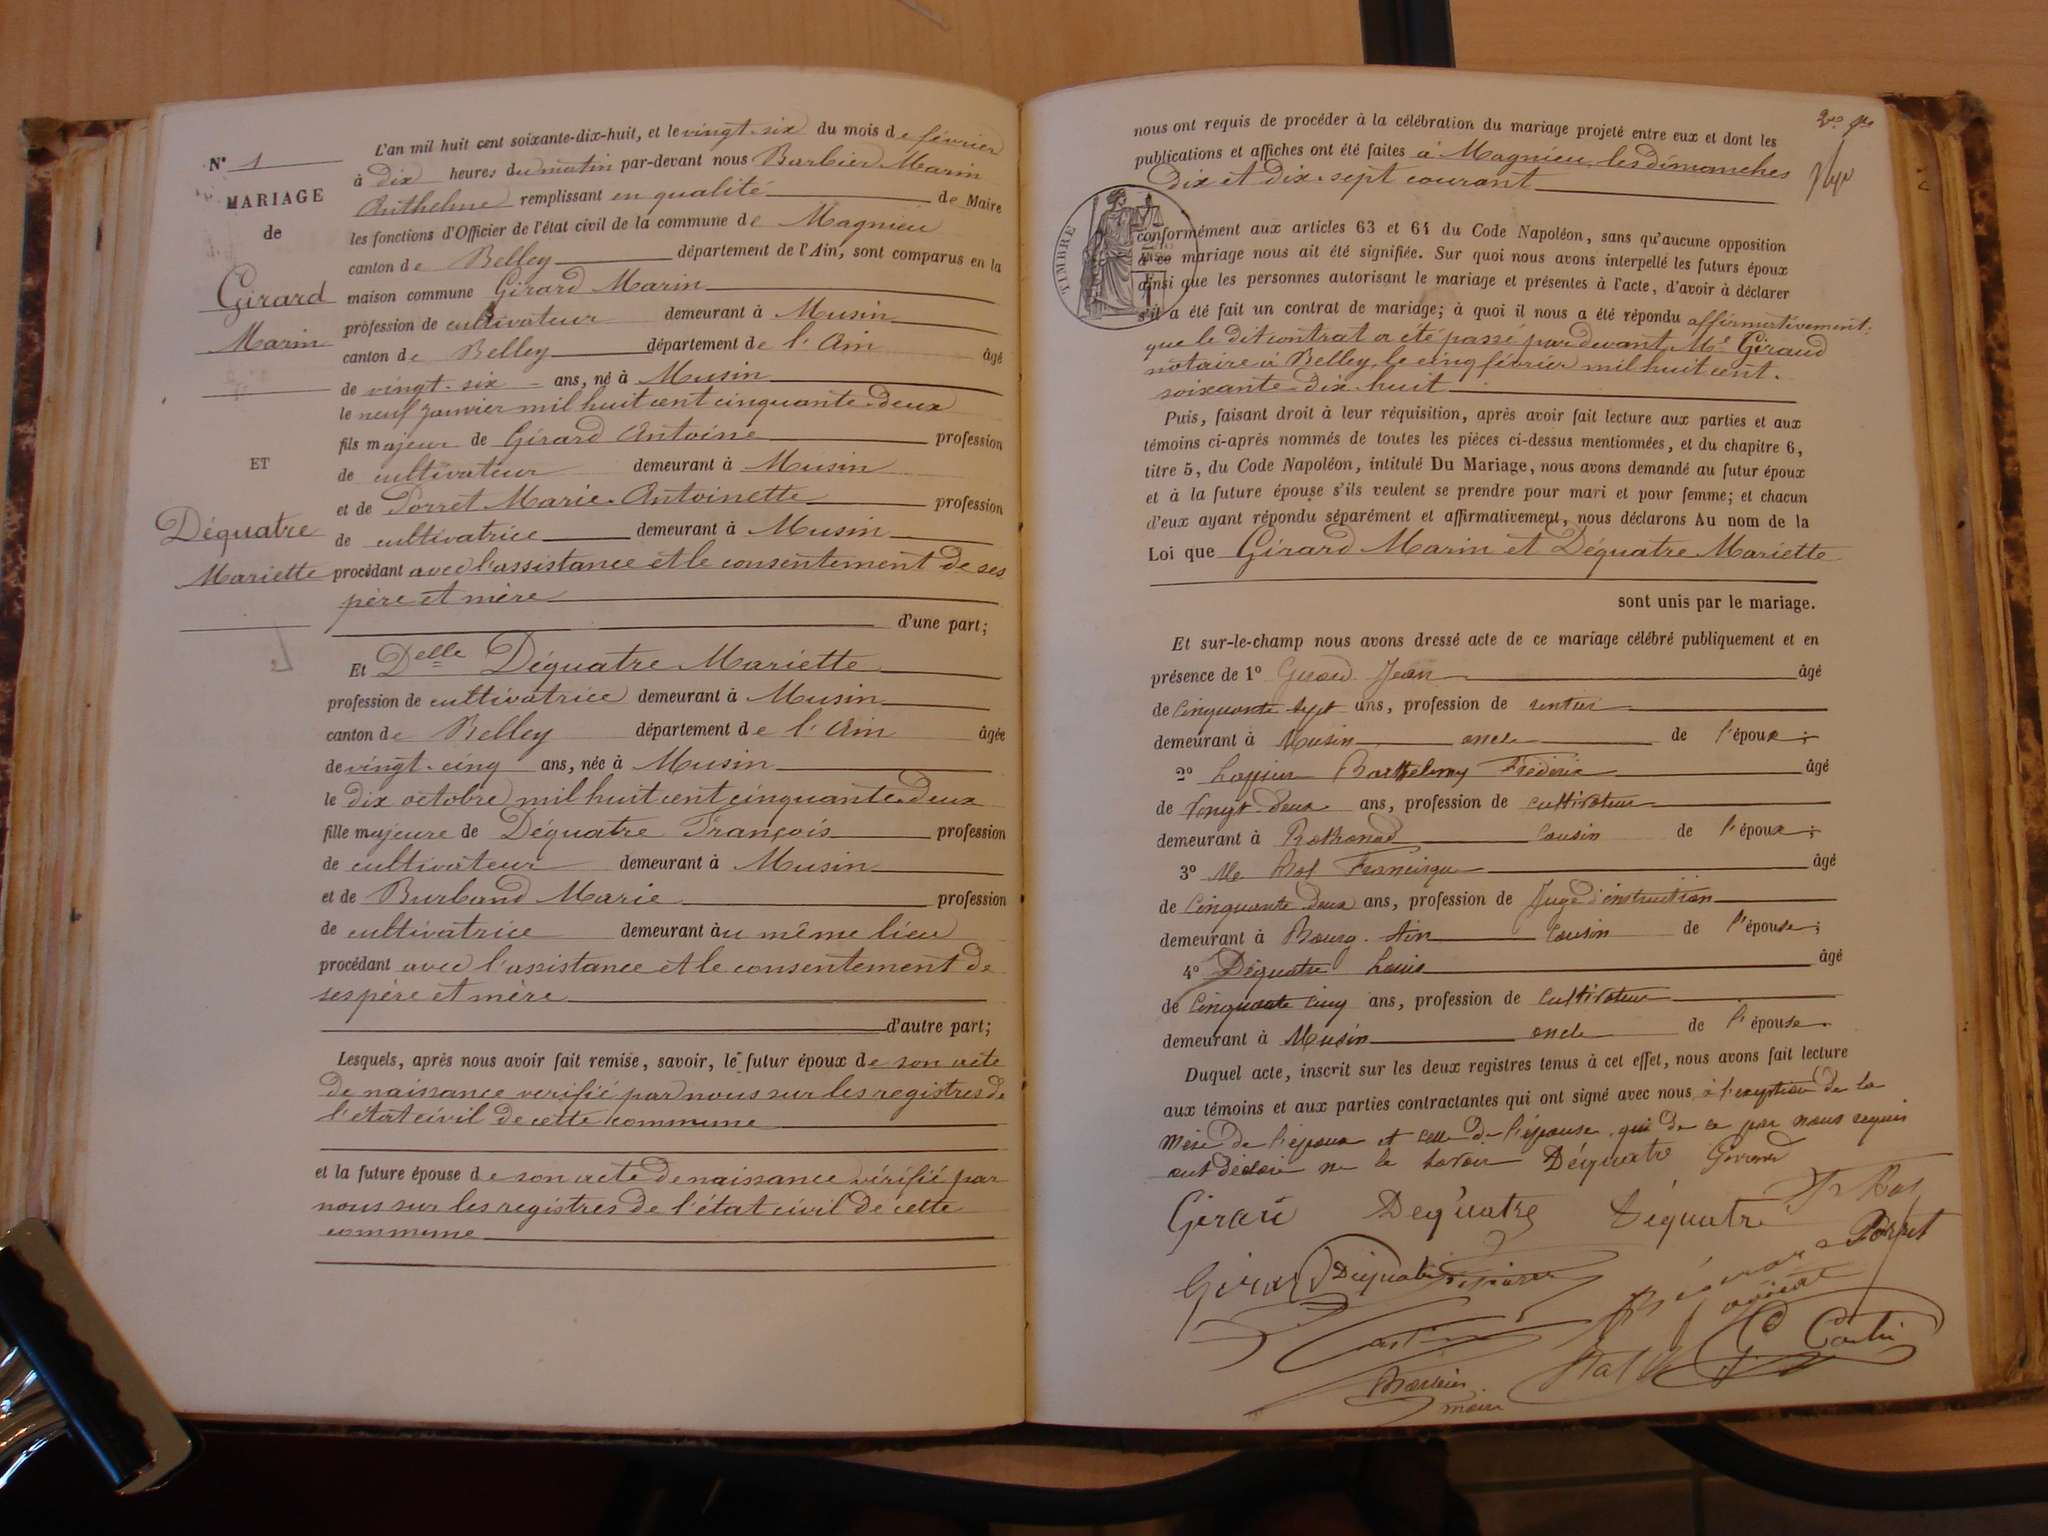 N° 1
MARIAGE
de
Girard
Marin
ET
Déquatre
Mariette
L'an mil huit cent soixante-dix-huit, et le vingt-six du mois de février
à dix heures du matin par-devant nous Barbier Marin
Anthelme remplissant en qualité de Maire
les fonctions d'Officier de l'état civil de la commune de Magnieu
canton de Belley département de l'Ain, sont comparus en la
maison commune Girard Marin
profession de cultivateur demeurant à Musin
canton de Belley département de l'Ain âgé
de vingt-six ans, né à Musin
le neuf janvier mil huit cent cinquante-deux
fils majeur de Girard Antoine profession
de cultivateur demeurant à Musin
et de Porret Marie-Antoinette profession
de cultivatrice demeurant à Musin
procédant avec l'assistance et le consentement de ses
père et mère
d'une part;
Et Delle Déquatre Mariette
profession de cultivatrice demeurant à Musin
canton de Belley département de l'Ain âgée
de vingt-cinq ans, née à Musin
le dix octobre mil huit cent cinquante-deux
fille majeure de Déquatre François profession
de cultivateur demeurant à Musin
et de Burband Marie profession
de cultivatrice demeurant au même lieu
procédant avec l'assistance et le consentement de
ses père et mère
d'autre part;
Lesquels, après nous avoir fait remise, savoir, le futur époux de son acte
de naissance verifié par nous sur les registres de
l'état civil de cette commune
et la future épouse de son acte de naissance vérifié par
nous sur les registres de l'état civil de cette
commune
nous ont requis de procéder à la célébration du mariage projeté entre eux et dont les
publications et affiches ont été faites à Magnieu les dimanches
dix et dix-sept courant
TIMBRE
conformément aux articles 63 et 64 du Code Napoléon, sans qu'aucune opposition
à ce mariage nous ait été signifiée. Sur quoi nous avons interpellé les futurs époux
ainsi que les personnes autorisant le mariage et présentes à l'acte, d'avoir à déclarer
s'il a été fait un contrat de mariage; à quoi il nous a été répondu affirmativement:
que le dit contrat a été passé pardevant Me Giraud
notaire à Belley le cinq février mil huit cent
soixante-dix-huit
Puis, faisant droit à leur réquisition, après avoir fait lecture aux parties et aux
témoins ci-après nommés de toutes les pièces ci-dessus mentionnées, et du chapitre 6,
titre 5, du Code Napoléon, intitulé Du Mariage, nous avons demandé au futur époux
et à la future épouse s'ils veulent se prendre pour mari et pour femme; et chacun
d'eux ayant répondu séparément et affirmativement, nous déclarons Au nom de la
Loi que Girard Marin et Déquatre Mariette
sont unis par le mariage.
Et sur-le-champ nous avons dressé acte de ce mariage célébré publiquement et en
présence de 1° Girard Jean âgé
de cinquante sept ans, profession de rentier
demeurant à Musin oncle de l'époux;
2° Barthelemy Frédéric âgé
de vingt-deux ans, profession de cultivateur
demeurant à Rothonod cousin de l'époux;
3° Me Francisque âgé
de cinquante deux ans, profession de Juge d'instruction
demeurant à Bourg Ain cousin de l'épouse;
4° Déquatre Louis âgé
de cinquante cinq ans, profession de cultivateur
demeurant à Musin oncle de l'épouse.
Duquel acte, inscrit sur les deux registres tenus à cet effet, nous avons fait lecture
aux témoins et aux parties contractantes qui ont signé avec nous à l'exception de la
mère de l'époux et celle de l'épouse qui de ce par nous requis
ont déclaré ne le savoir Déquatre Girard
Girard Dequatre Déquatre
Porret
Girard Dequatre
Barbier
maire